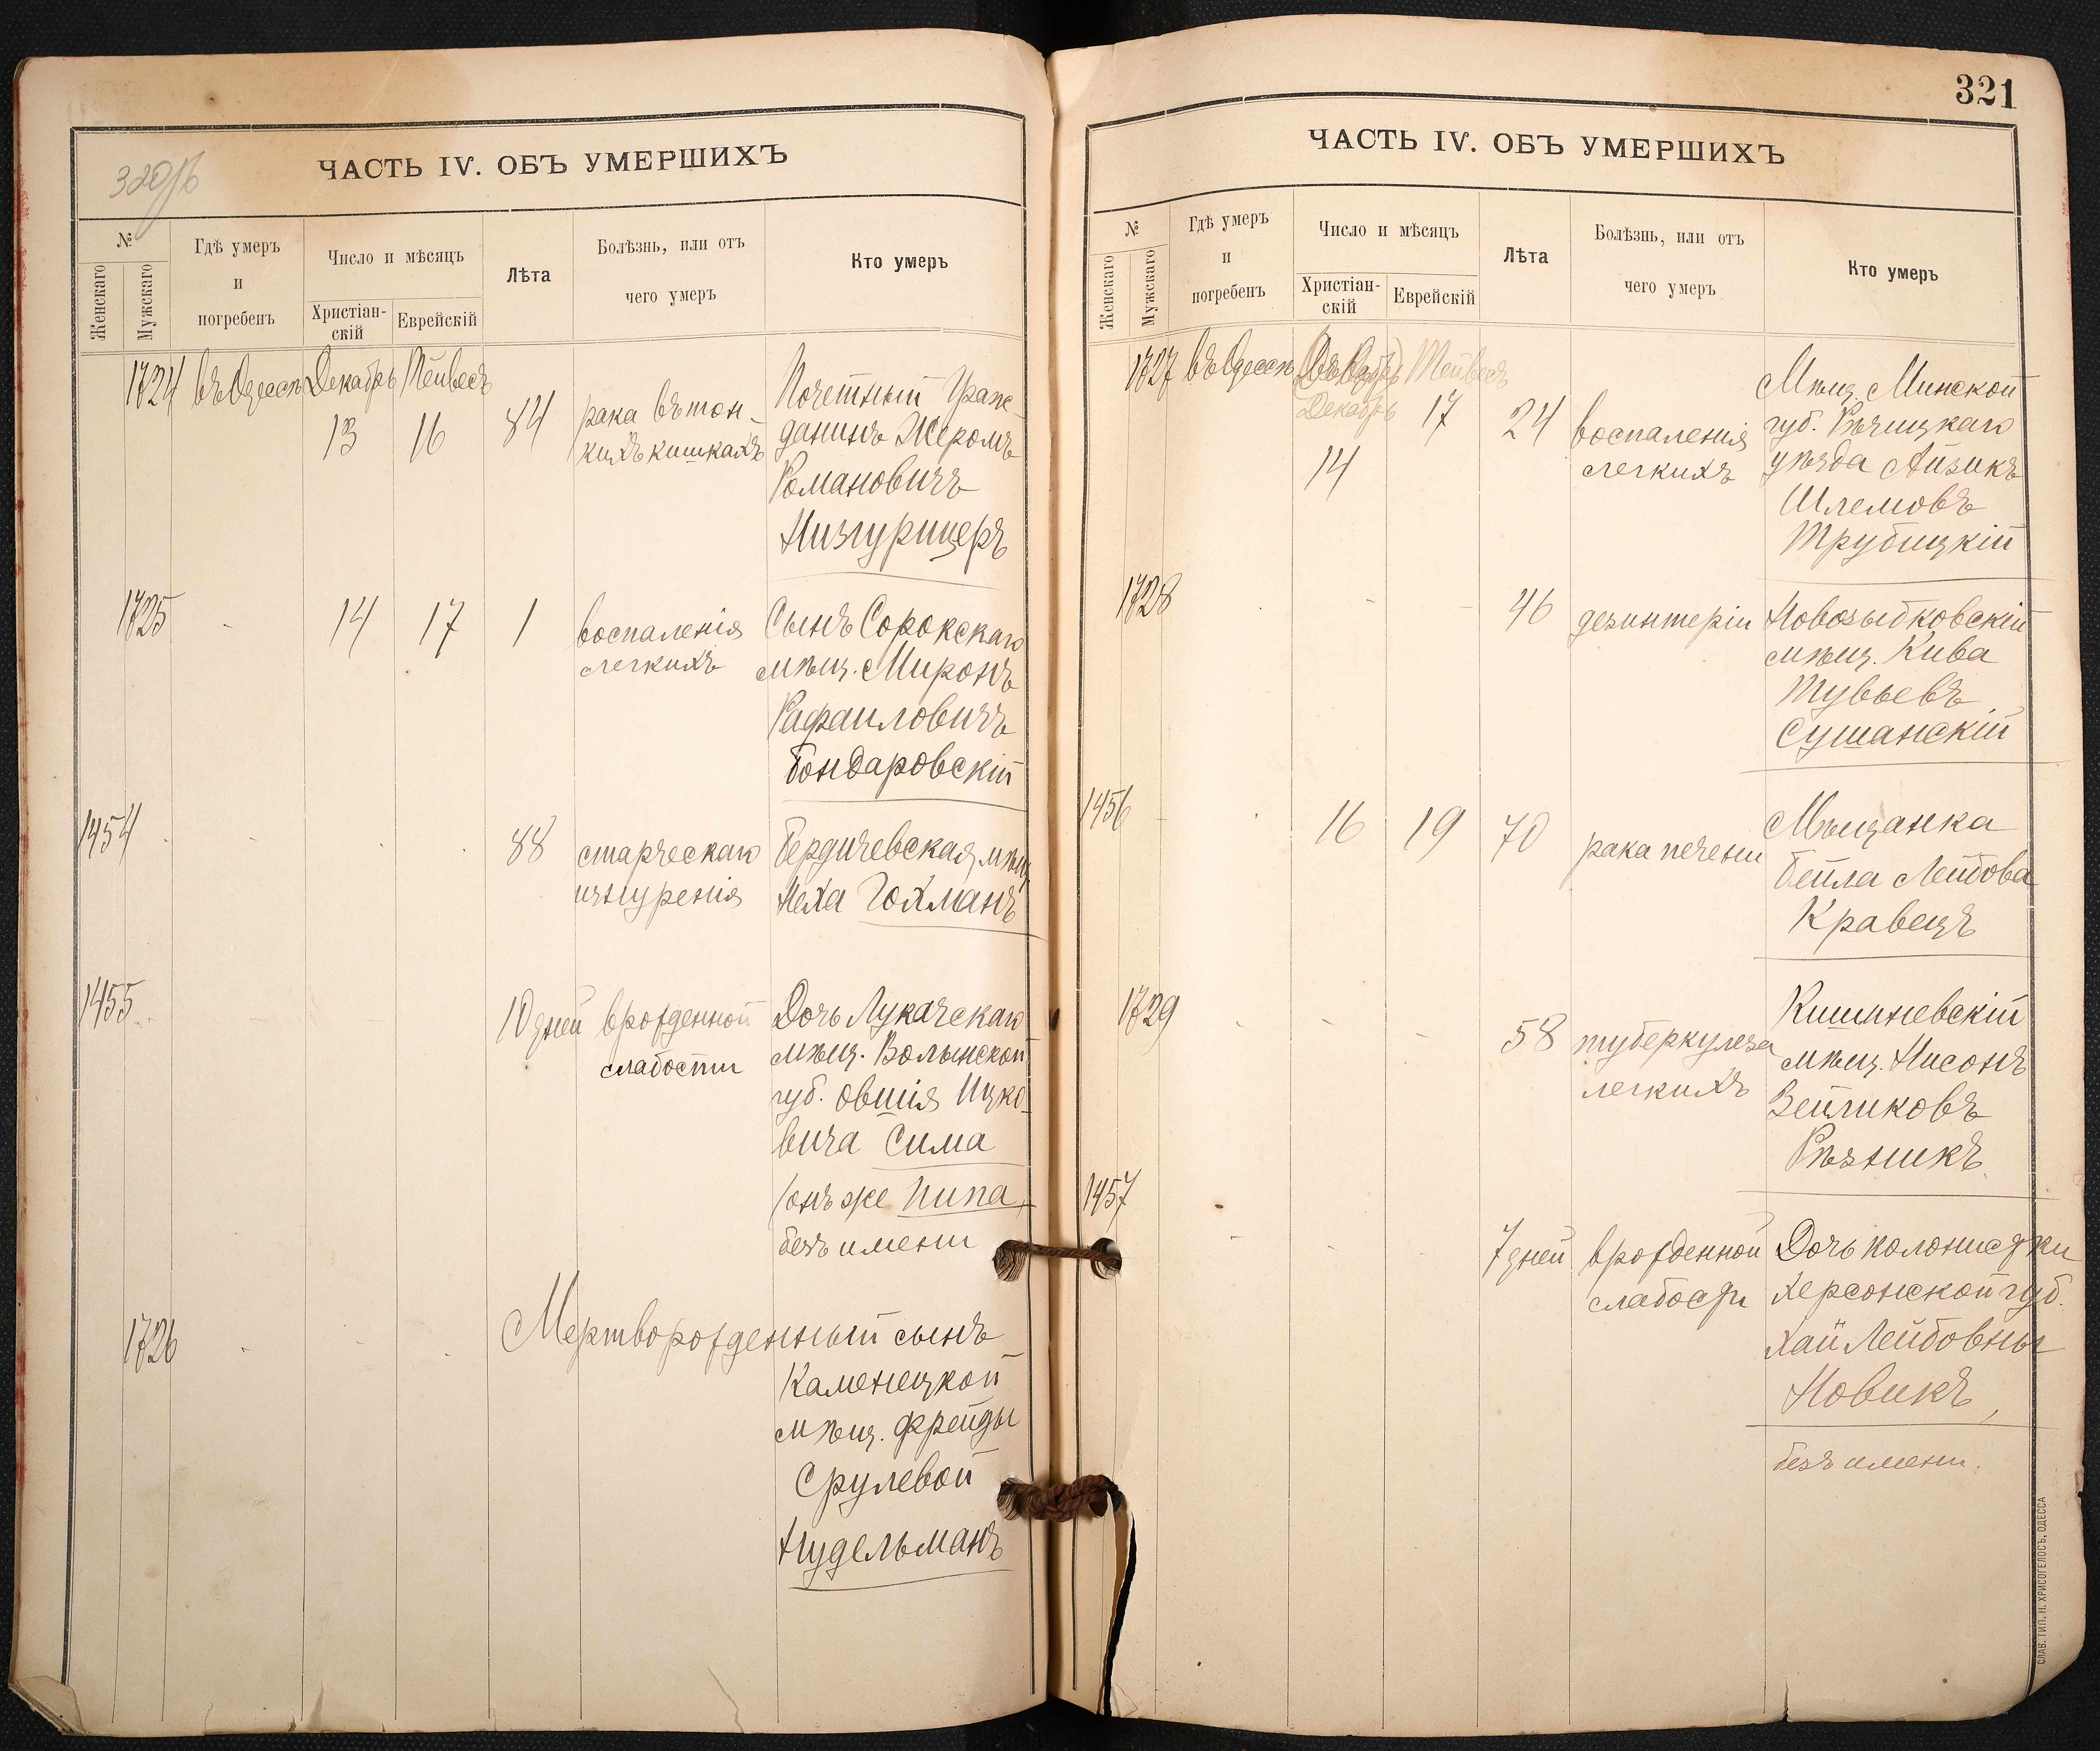 ЧАСТЬ IV. ОБЪ УМЕРШИХЪ
№
Женскаго
Мужскаго
Гдѣ умеръ
и
погребенъ
Число и мѣсяцъ
Христіан-
скій
Еврейскій
Лѣта
Болѣзнь, или отъ
чего умеръ
Кто умеръ
1724 въ Одессѣ Декабрь Тейвесъ
13 16 84
рака въ тон-
кихъ кишкахъ
Почетный Граж-
данинъ Жеромъ
Романовичъ
Низгурицеръ
1725 14 17 1
воспаленія
легкихъ
Сынъ Сорокскаго
мѣщ. Миронъ
Рафаиловичъ
Бондаровскій
1454 88
старческаго
изнуренія
Бердичевская мѣщ.
Неха Гохманъ
1455 10 дней
врожденной
слабости
Дочь Лукачскаго
мѣщ. Волынской
губ. Овшія Ицко-
вича Сима
/онъ же Пипа/
безъ имени
1726
Мертворожденный сынъ
Каменецкой
мѣщ. Фрейды
Срулевой
Нудельманъ
321
ЧАСТЬ IV. ОБЪ УМЕРШИХЪ
№
Женскаго
Мужскаго
Гдѣ умеръ
и
погребенъ
Число и мѣсяцъ
Христіан-
скій
Еврейскій
Лѣта
Болѣзнь, или отъ
чего умеръ
Кто умеръ
1727 въ Одессѣ Тейвесъ
Декабрь
14 17 24
воспаленія
легкихъ
Мѣщ. Минской
губ. Рѣчицкаго
уѣзда Айзикъ
Шлемовъ
Трубицкій
1728 46
дезинтеріи
Новозыбковскій
мѣщ. Кива
Тувьевъ
Сушанскій
1456 16 19 70
рака печени
Мѣщанка
Бейла Лейбова
Кравецъ
1729 58
туберкулеза
легкихъ
Кишиневскій
мѣщ. Нисонъ
Зейликовъ
Рѣзникъ
1457
7 дней
врожденной
слабости
Дочь колонистки
Херсонской губ.
Хаи Лейбовны
Новикъ,
безъ имени.
СЛАВ. ТИП. Н. ХРИСОГЕЛОСЪ, ОДЕССА